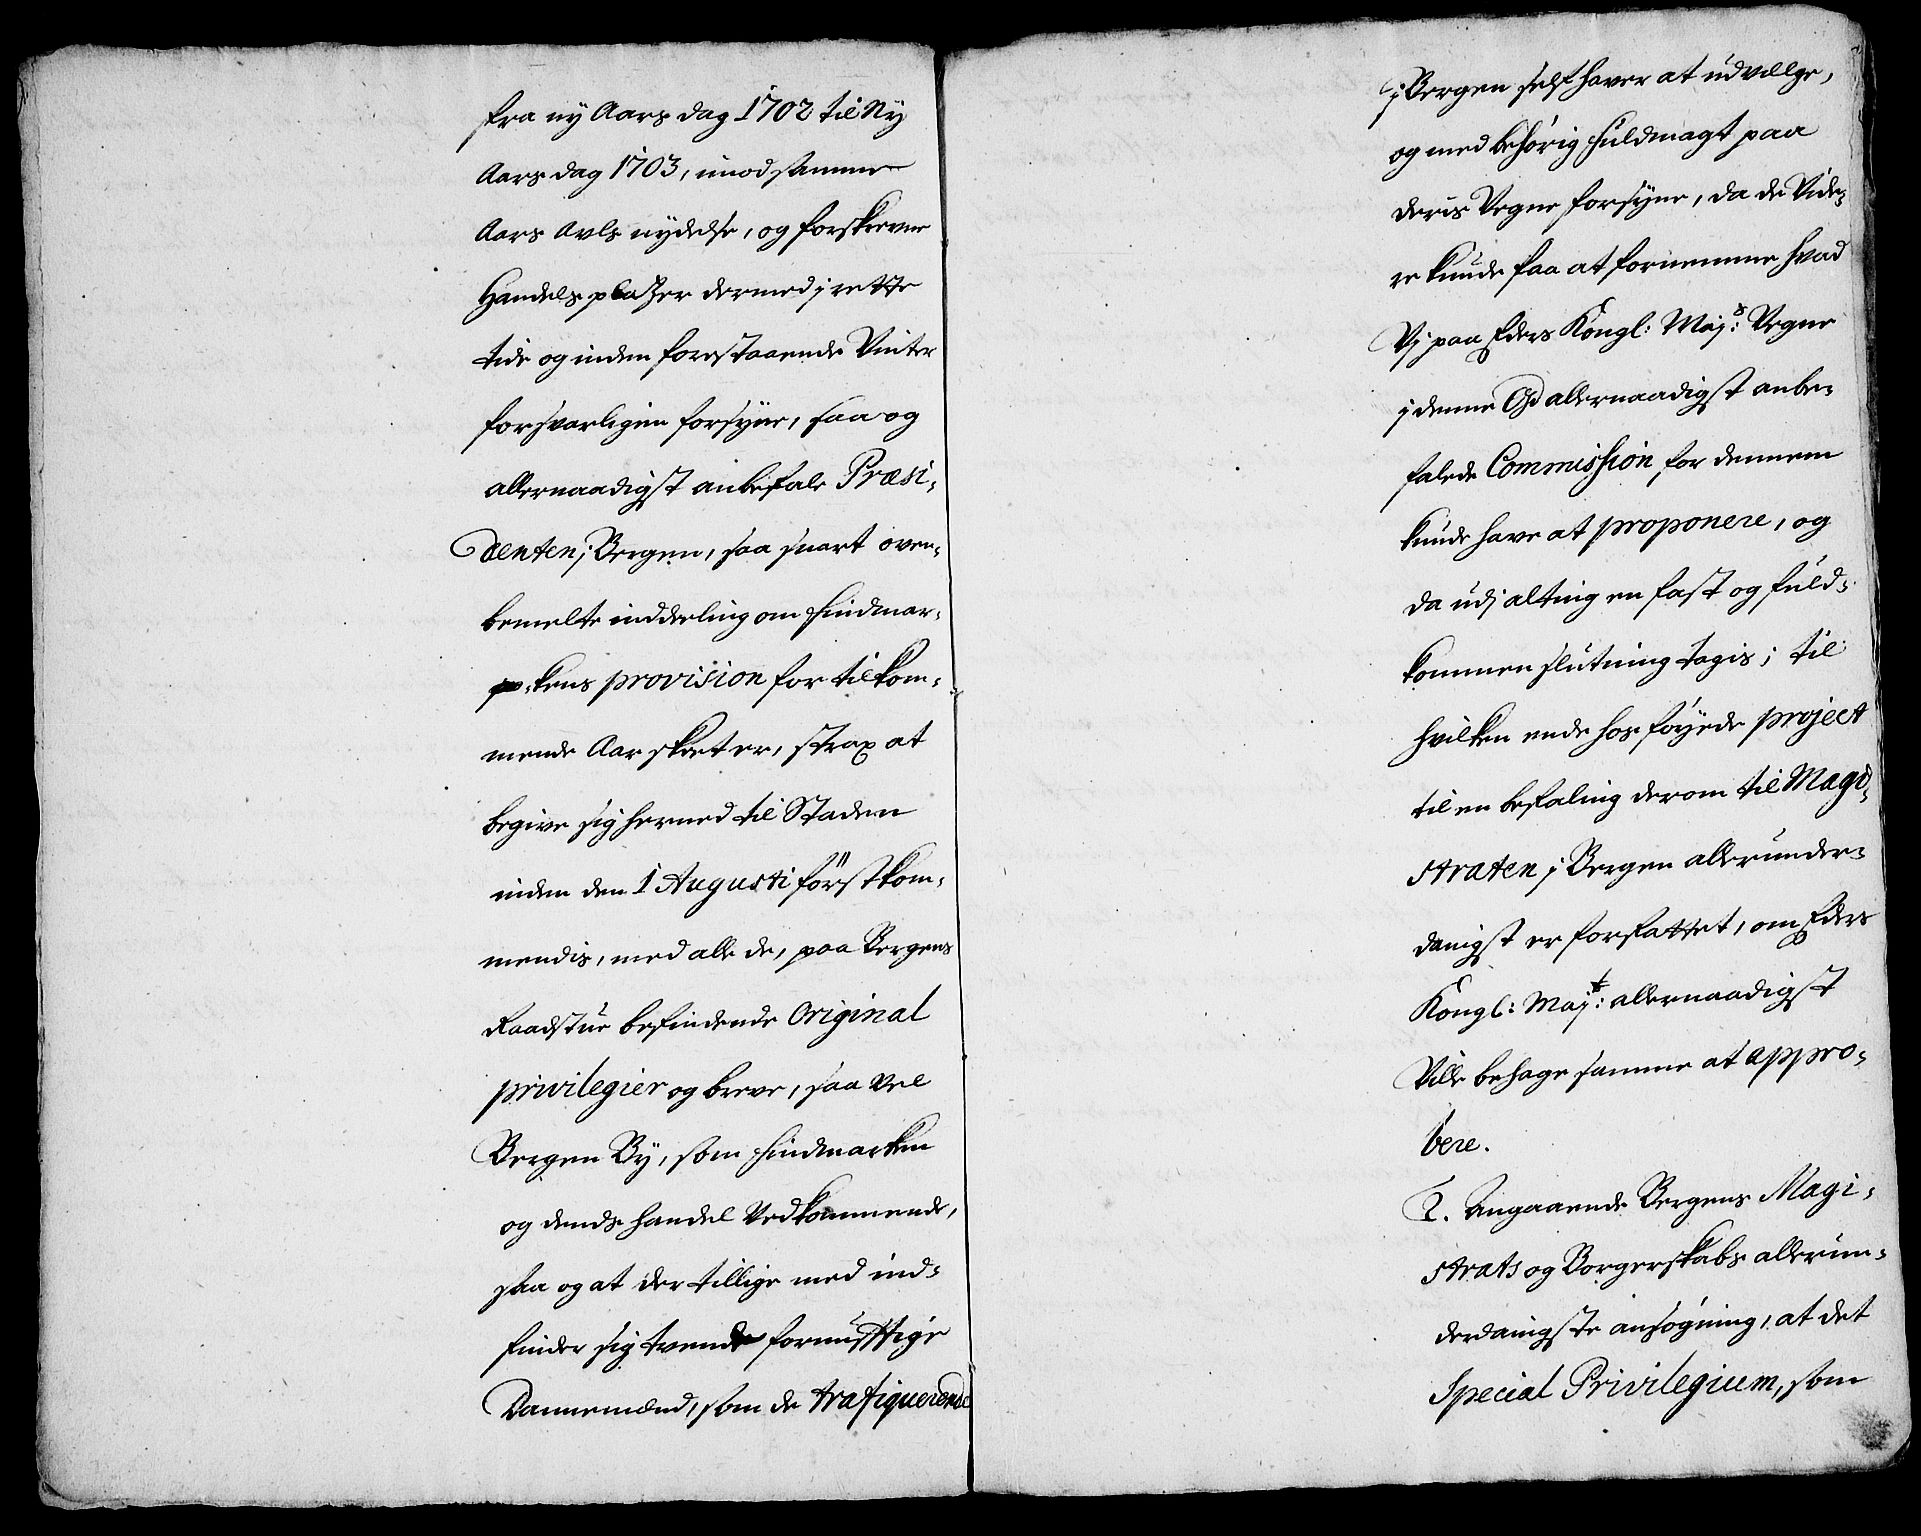 fra ny Aars dag 1702 til Ny
Aars dag 1703, imod samme
Aars Avls nydelse, og forskrevne
Handels plazer dermed j rette
tide og inden forestaaende Vinter
forsvarligen forsyne, saa og
allernaadigst anbefale Præsi-
denten j Bergen, saa snart oven-
bemelte inddeeling om Findmar-
kens provision for tilkom-
mende Aar skeet er, strax at
begive sig herned til Staden
inden den 1 Augusti förstkom-
mendis, med alle de, paa Bergens
Raadstue befindende Original
privilegier og breve, saa vel
Bergen By, som Findmarken
og dends handel Vedkommende,
saa og at der tillige med ind-
finder sig tvende fornufftige
Dannemænd, som de trafiquerende
j Bergen self haver at udvælge,
og med behörig fuldmagt paa
deris Vegne forsyne, da de Vide-
re kunde faa at fornemme hvad
Vj paa Eders Kongl: Maj:s Vegne
j denne Os allernaadigst anbe-
falede Commission for dennem
kunde have at proponere, og
da udj alting en fast og fuld-
kommen slutning tagis; til
hvilken ende hos föyede project
til en befaling derom til Magi-
straten j Bergen allerunder-
danigst er forfattet, om Eders
Kongl: Maj:t allernaadigst
Ville behage samme at appro-
bere.
2. Angaaende Bergens Magi-
strats og Borgerskabs allerun-
derdanigste ansögning, at det
Special Privilegium, som